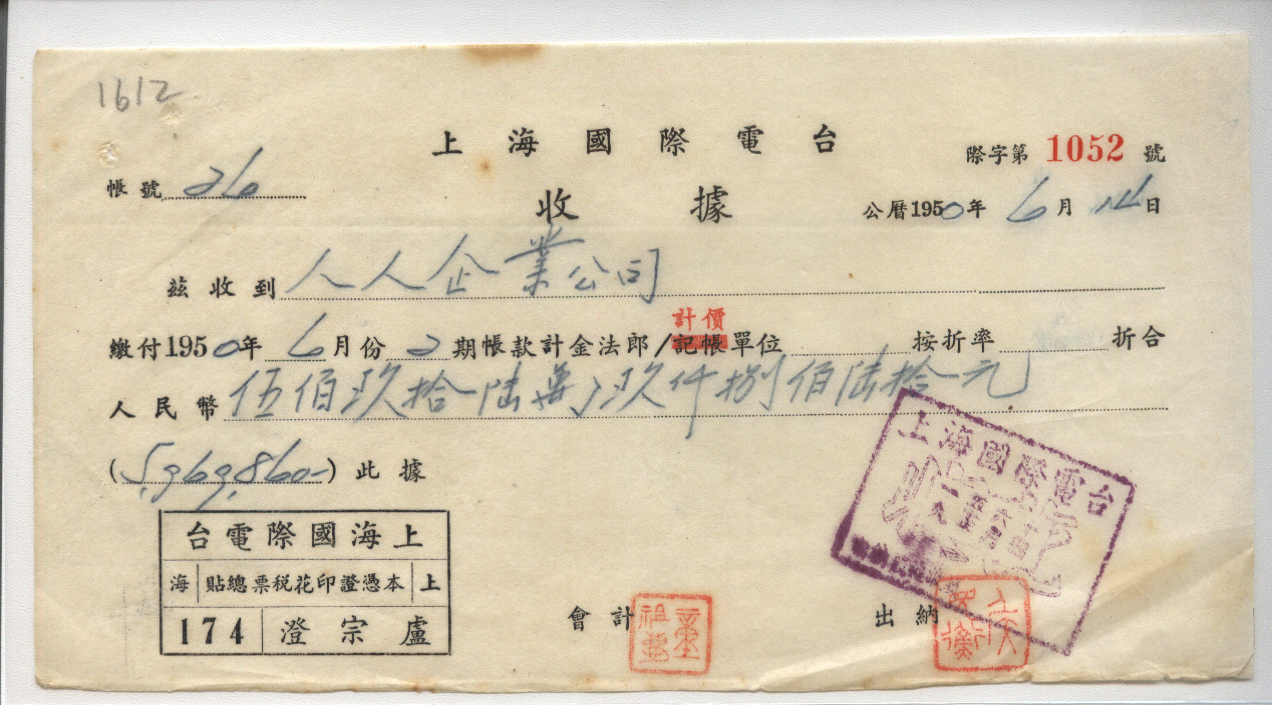 1612
上海國際電台
際字第 1052 號
帳號 26
收據
公曆1950年 6月 14日
茲收到 人人企業公司
計價
繳付1950年 6月份 2期帳款計金法郎/記帳單位 按折率 折合
人民幣 伍佰玖拾陸萬玖仟捌佰陸拾元
(5,969,860-) 此據
上海國際電台
台電際國海上
海 貼總票稅花印證憑本 上
174 澄宗盧
會計
出納